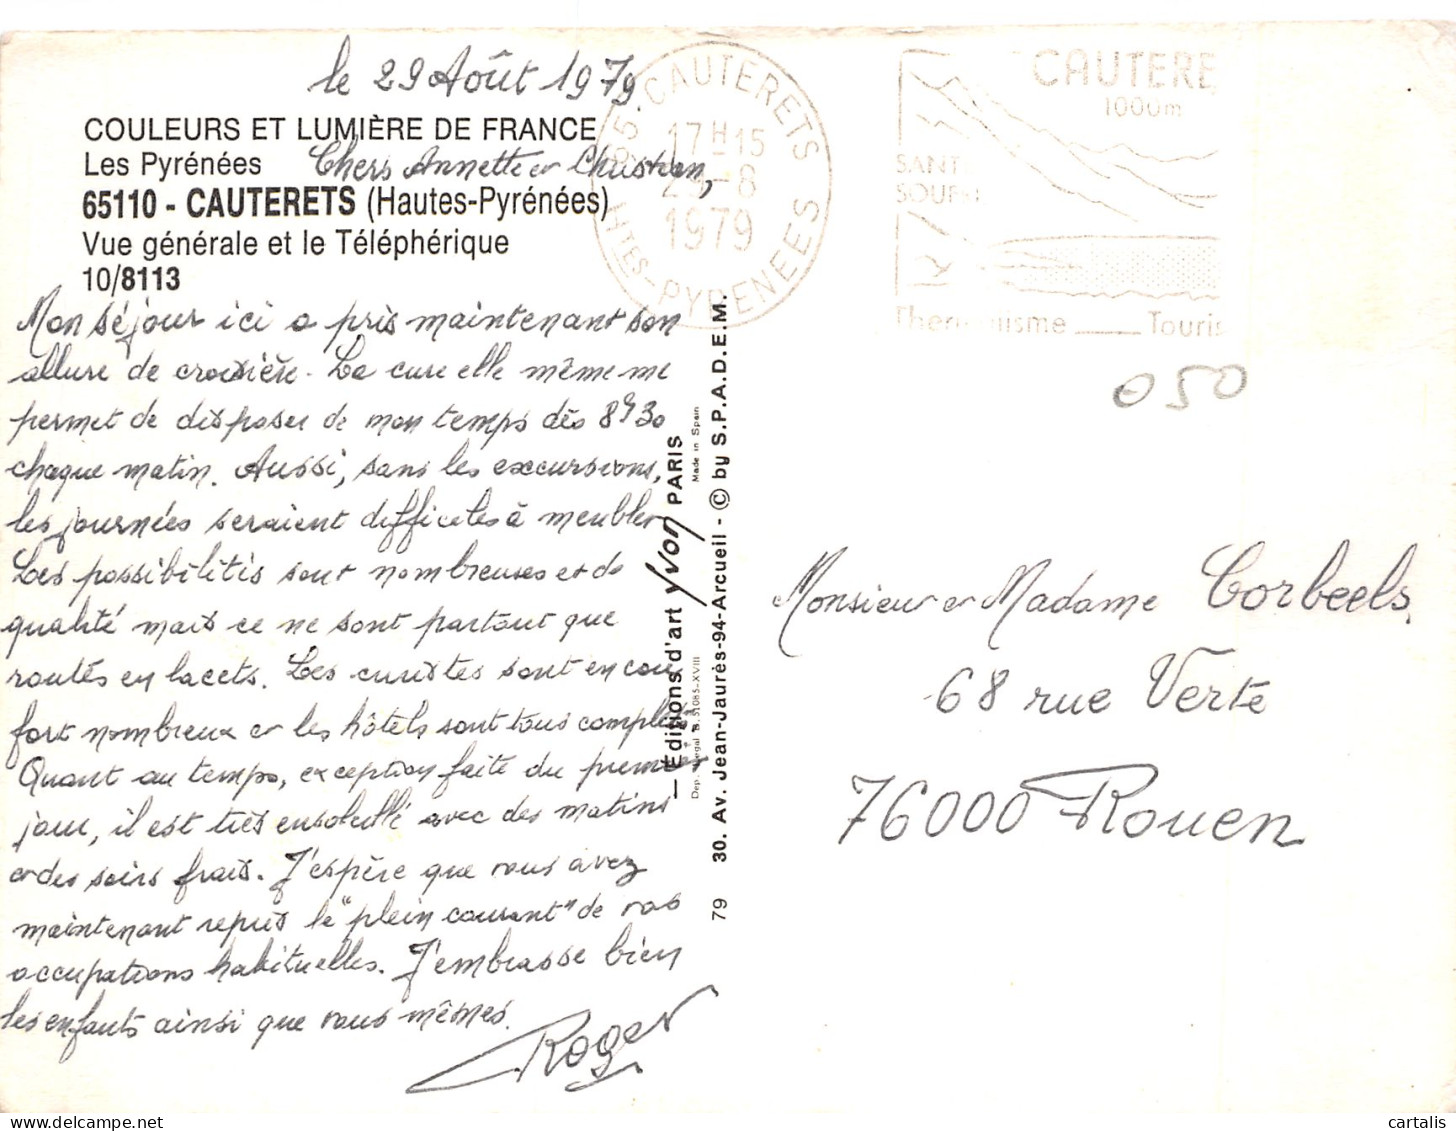 le 29 Août 1979.
COULEURS ET LUMIÈRE DE FRANCE
Les Pyrénées
Chers Annette et Christian,
65110 - CAUTERETS (Hautes-Pyrénées)
Vue générale et le Téléphérique
10/8113
Mon séjour ici a pris maintenant son
allure de croisière. La cure elle même me
permet de disposer de mon temps dès 8h30
chaque matin. Aussi, sans les excursions,
les journées seraient difficiles à meubler
Les possibilités sont nombreuses et de
qualité mais ce ne sont partout que
routes en lacets. Les curistes sont encore
fort nombreux et les hôtels sont tous complets
Quant au temps, exception faite du premier
jour, il est très ensoleillé avec des matins
et des soirs frais. J'espère que vous avez
maintenant repris le "plein courant" de vos
occupations habituelles. J'embrasse bien
les enfants ainsi que vous mêmes.
Roger
— Éditions d'art YVON PARIS
Made in Spain
Dep. legal B. 31085-XVIII
79 30. Av. Jean-Jaurès-94-Arcueil - © by S.P.A.D.E.M.
65 CAUTERETS
17H15
29-8
1979
HTES-PYRENEES
CAUTERE
1000m
SANT
SOUR
Thermalisme ___ Touris
050
Monsieur et Madame Corbeels
68 rue Verte
76000 Rouen
cartalis
www.delcampe.net